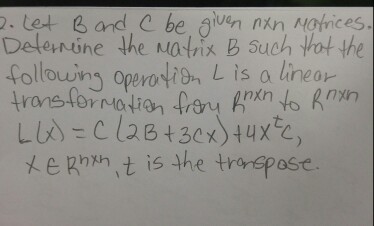 2. Let B and C be given nxn matrices.
Determine the matrix B such that the
following operation L is a linear
transformation from Rⁿˣⁿ to Rⁿˣⁿ
L(x) = C(2B+3CX)+4XᵗC,
X ∈ Rⁿˣⁿ, t is the transpose.